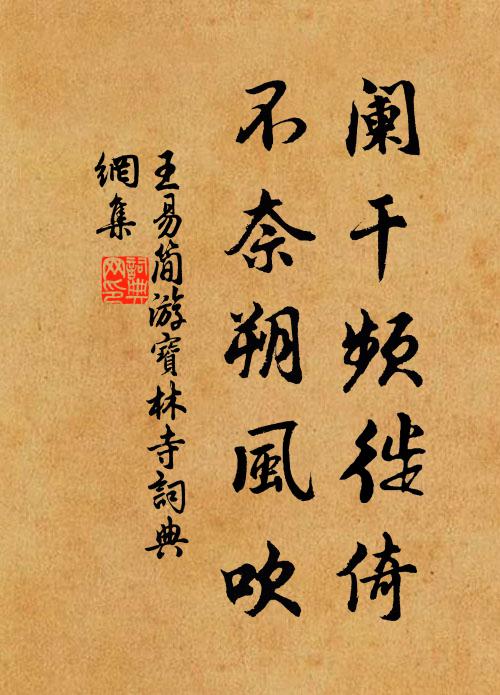 阑干频徙倚
不奈朔風吹
王易简游寶林寺詞典
網集
詞典
网印